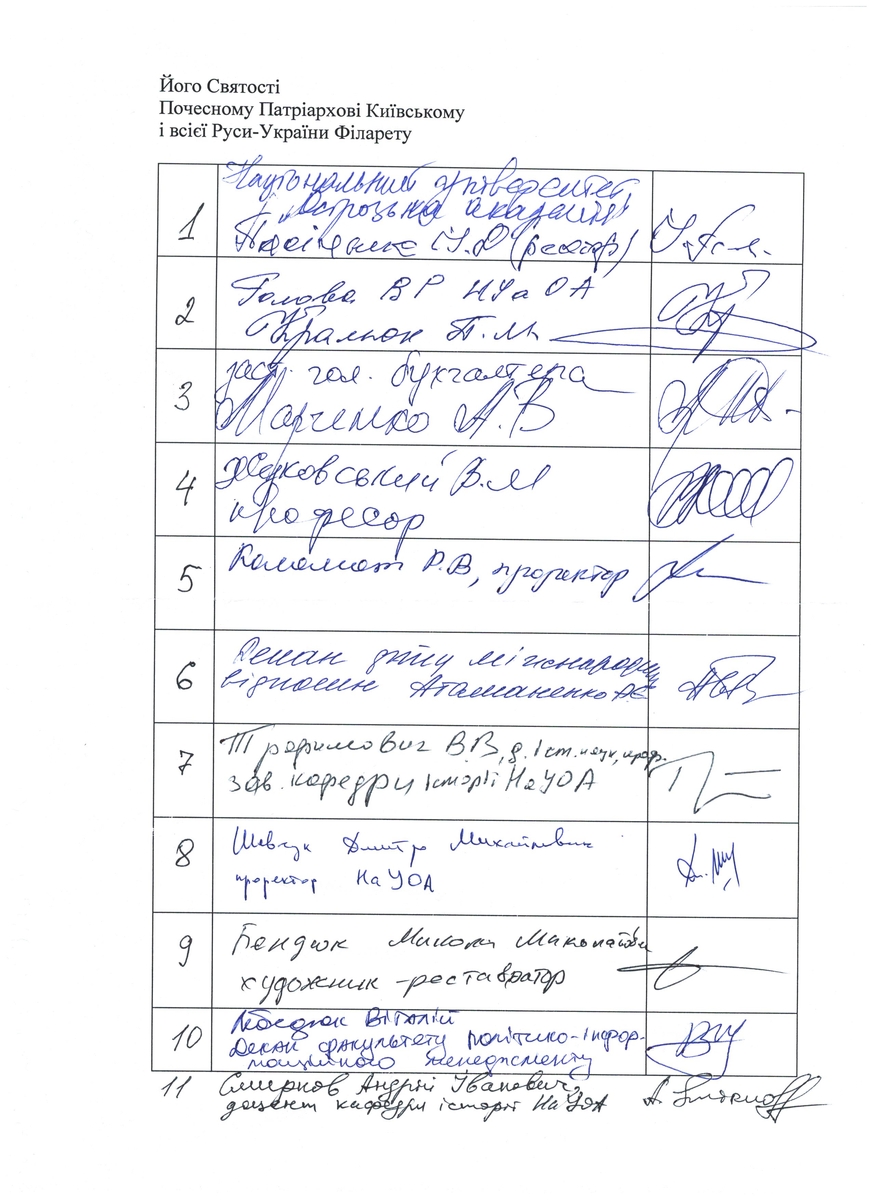 Його Святості
Почесному Патріархові Київському
і всієї Руси-України Філарету
1
Національний університет
"Острозька академія"
Пасічник І.Д (ректор)
2
Голова ВР НУаОА
Кралюк П.М.
3
заст. гол. бухгалтера
Марченко А.В
4
Жуковський В.М
професор
5
Каламаж Р.В, проректор
6
Декан ф-ту міжнародних
відносин Атаманенко А Є
7
Трофимович В.В, д. іст. наук, проф.
зав. кафедри історії НаУОА
8
Шевчук Дмитро Михайлович
проректор НаУОА
9
Бендюк Микола Миколайович
художник-реставратор
10
Лебедюк Віталій
Декан факультету політико-інфор-
маційного менеджменту
11 Смирнов Андрій Іванович,
доцент кафедри історії НаУОА A. Smirnoff